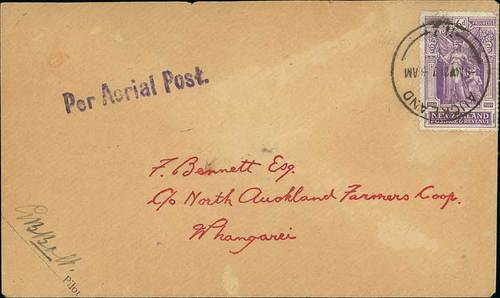 Per Aerial Post.
AUCKLAND
NEW ZEALAND
POSTAGE & REVENUE
F. Bennett Esq.
C/o North Auckland Farmers Coop.
Whangarei
Pilot